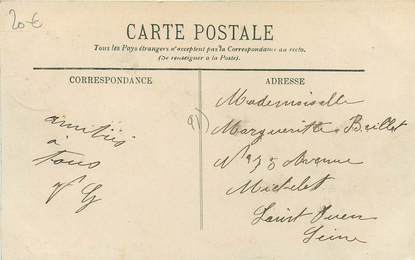 20€
CARTE POSTALE
Tous les Pays étrangers n'acceptent pas la Correspondance au recto.
(Se renseigner à la Poste).
CORRESPONDANCE
amitiés
à
tous
G
ADRESSE
91)
Mademoiselle
Margueritte Baillet
Avenue
Michelet
Saint Ouen
Seine